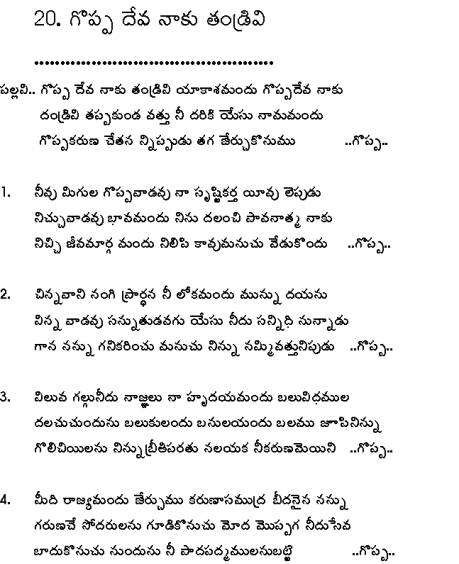 20. గొప్ప దేవ నాకు తండ్రివి
..............................................
పల్లవి.. గొప్ప దేవ నాకు తండ్రివి యాకాశమందు గొప్పదేవ నాకు
దండ్రివి తప్పకుండ వత్తు నీ దరికి యేసు నామమందు
గొప్పకరుణ చేతన న్నిప్పుడు తగ జేర్చుకొనుము ..గొప్ప..
1. నీవు మిగుల గొప్పవాడవు నా సృష్టికర్త యీవు లెపుడు
నిచ్చువాడవు భావమందు నిను దలంచి పావనాత్మ నాకు
నిచ్చి జీవమార్గ మందు నిలిపి కావుమనుచు వేడుకొందు ..గొప్ప..
2. చిన్నవాని నంగి ప్రార్ధన నీ లోకమందు మున్ను దయను
విన్న వాడవు సన్నుతుడవగు యేసు నీదు సన్నిధి నున్నాడు
గాన నన్ను గనికరించు మనుచు నిన్ను నమ్మివత్తునిపుడు ..గొప్ప..
3. విలువ గల్గునీదు నాజ్ఞలు నా హృదయమందు బలువిధముల
దలచుచుందును బలుకులందు బనులయందు బలము జూపినిన్ను
గొలిచియిలను నిన్నుబ్రీతిపరతు నలయక నీకరుణమెయిని ..గొప్ప..
4. మీది రాజ్యమందు జేర్చుము కరుణాసముద్ర బీదనైన నన్ను
గరుణచే సోదరులను గూడికొనుచు మోద మొప్పగ నీదుసేవ
బాదుకొనుచు నుందును నీ పాదపద్మములనుబట్టి ..గొప్ప..